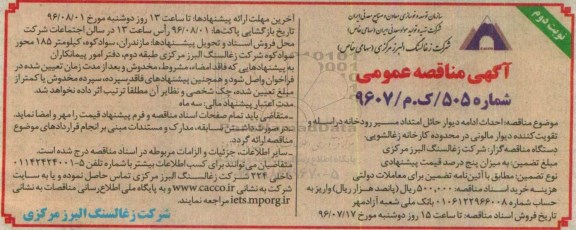 نوبت دوم
سازمان توسعه و نوسازی معادن و صنایع معدنی ایران
شرکت تهیه و تولید مواد معدنی ایران (سهامی خاص)
شرکت زغالسنگ البرز مرکزی (سهامی خاص)
آگهی مناقصه عمومی
شماره ۵۰۵/ک.م/۹۶۰۷
موضوع مناقصه: احداث ادامه دیوار حائل امتداد مسیر رودخانه دراسله و
تقویت کننده دیوار مالونی در محدوده کارخانه زغالشویی.
دستگاه مناقصه گزار: شرکت زغالسنگ البرز مرکزی
مبلغ تضمین: به میزان پنج درصد قیمت پیشنهادی
نوع تضمین: مطابق با آئین‌نامه تضمین برای معاملات دولتی
هزینه خرید اسناد مناقصه: ۵۰۰,۰۰۰ ریال (پانصد هزار ریال) واریز به
حساب شماره ۰۱۰۶۱۲۲۹۶۶۰۰۸ بانک ملی شعبه آزادمهر
تاریخ فروش اسناد مناقصه: تا ساعت ۱۵ روز دوشنبه مورخ ۹۶/۰۷/۱۷
آخرین مهلت ارائه پیشنهادها تا ساعت ۱۳ روز دوشنبه مورخ ۹۶/۰۸/۰۱
تاریخ بازگشایی پاکت‌ها: ۹۶/۰۸/۰۱ رأس ساعت ۱۳ در سالن اجتماعات شرکت
محل فروش اسناد و تحویل پیشنهادها: مازندران، سوادکوه، کیلومتر ۱۸۵ محور
سوادکوه شرکت زغالسنگ البرز مرکزی طبقه دوم، دفتر امور پیمانکاران
به پیشنهادهایی که فاقد امضاء، مشروط، مخدوش و بعد از مدت زمان تعیین شده در
فراخوان واصل شود و همچنین پیشنهادهای فاقد سپرده، سپرده مخدوش یا کمتر از
مبلغ تعیین شده، چک شخصی و نظایر آن مطلقاً ترتیب اثر داده نخواهد شد.
مدت اعتبار پیشنهاد مالی: سه ماه
ـ متقاضی باید تمام صفحات اسناد مناقصه و فرم پیشنهاد قیمت را مهر و امضا نماید.
درصورت داشتن سابقه، مدارک و مستندات مبنی بر انجام قراردادهای موضوع
مناقصه ارائه گردد.
ـ سایر اطلاعات، جزئیات و الزامات مربوطه در اسناد مناقصه درج شده است.
متقاضیان می‌توانند برای کسب اطلاعات بیشتر با شماره تلفن ۵-۰۱۱۴۲۴۲۴۰۰۱
داخلی ۲۲۴ شرکت زغالسنگ البرز مرکزی تماس حاصل نموده و یا به سایت
شرکت به نشانی www.cacco.ir و به پایگاه ملی اطلاع‌رسانی مناقصات به نشانی
iets.mporg.ir مراجعه نمایند.
شرکت زغالسنگ البرز مرکزی